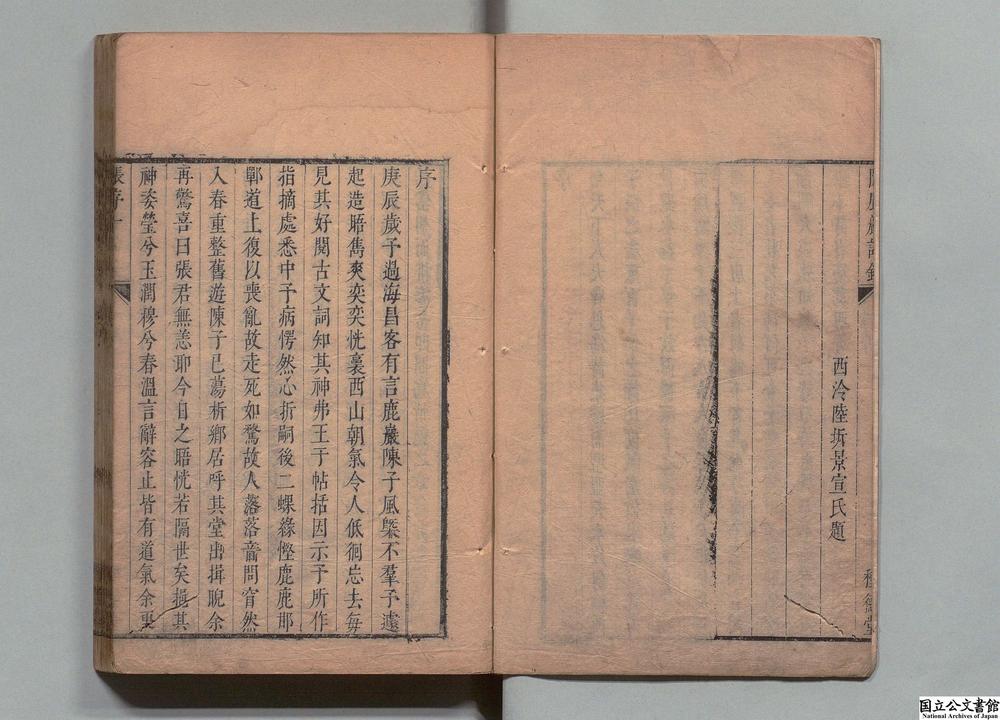 西泠陸圻景宣氏題
序
庚辰歲予過海昌客有言鹿巖陳子風槩不羣予遠
起造晤雋爽奕奕恍裏西山朝氣令人低徊忘去每
見其好閱古文詞知其神弗王于帖括因示予所作
指摘處悉中予病愕然心折嗣後二
鹿鹿邯
鄲道上復以喪亂故走死如騖故人落落音問窅然
入春重整舊遊陳子已蕩析鄉居呼其堂出揖睨余
再驚喜曰張君無恙耶今日之晤恍若隔世矣挹其
神姿瑩兮玉潤穆兮春溫言辭容止皆有道氣余更
張序一
国立公文書館
National Archives of Japan